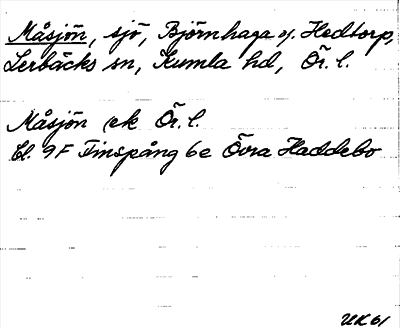 Måsjön, sjö, Björnhaga o. Hedtorp,
Lerbäcks sn, Kumla hd, Ör. l.
Måsjön ek Ör. l.
Bl. 9F Finspång 6e Övra Haddebo
UK 61